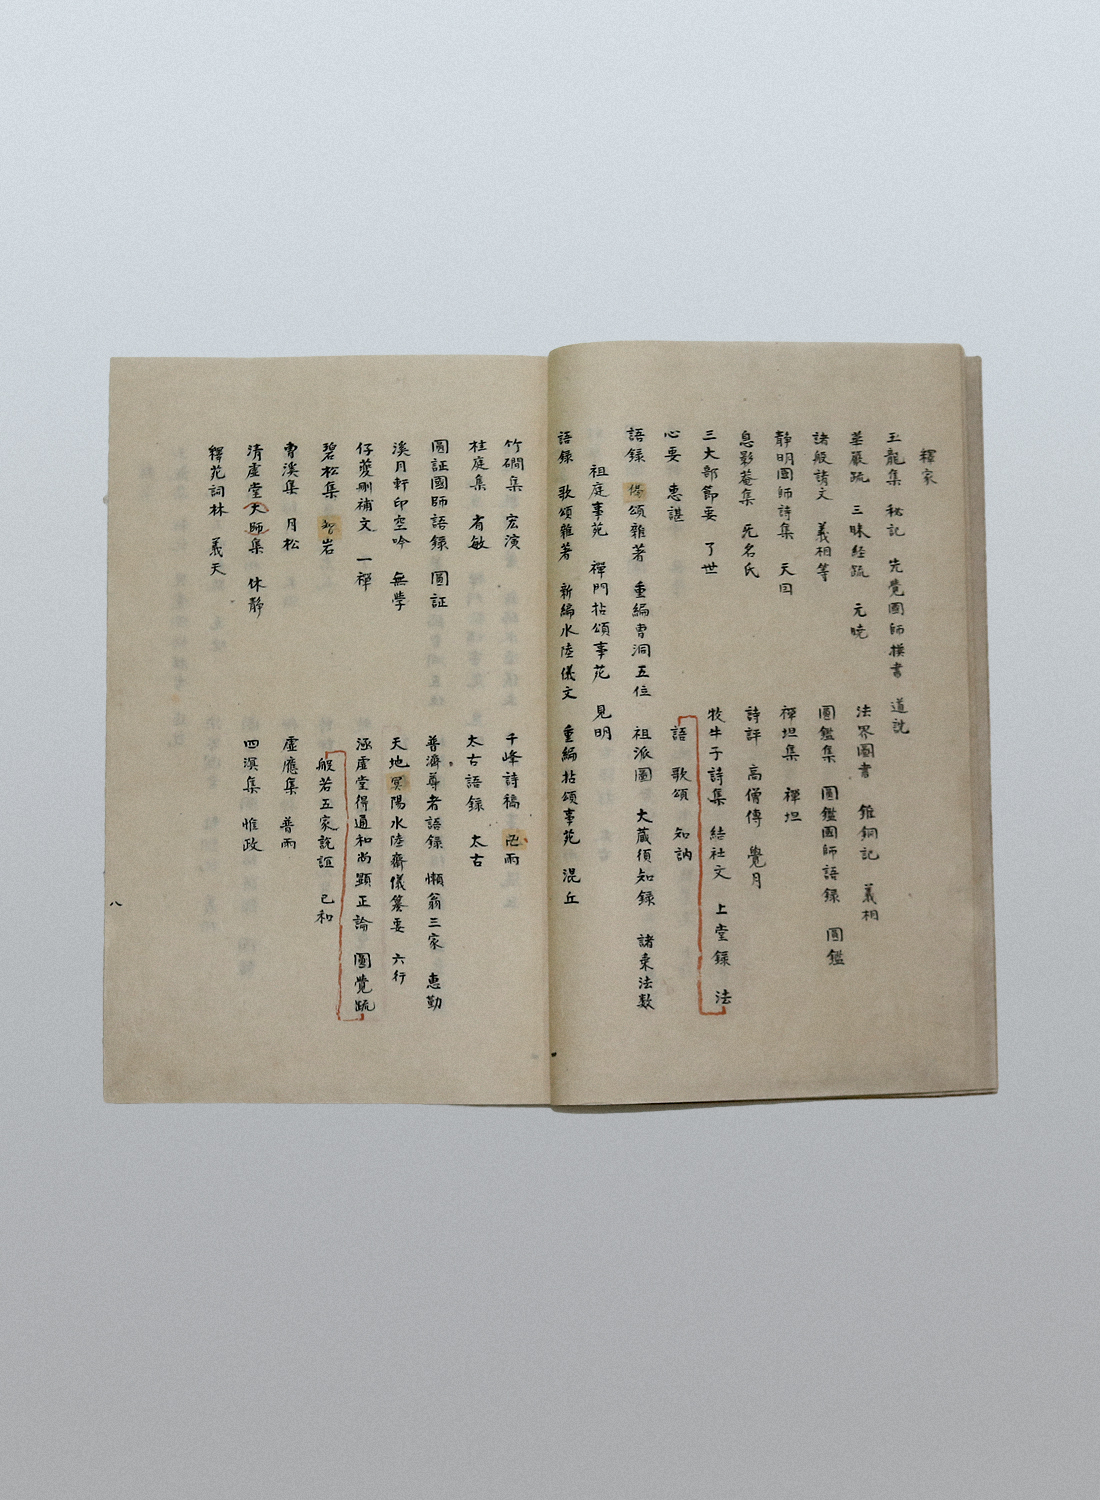 釋家
玉龍集 秘記 先覺國師撲書 道詵
華嚴疏 三昧経疏 元曉
法界圖書 錐銅記 義相
諸般請文 義相等
圓鑑集 圓鑑國師語録 圓鑑
静明國師詩集 天因
禪坦集 禪坦
息影菴集 死名氏
詩評 高僧傳 覺月
三大部節要 了世
牧牛子詩集 結社文 上堂録 法
語 歌頌 知訥
心要 惠諶
語録 偈頌雜著 重編曺洞五位 祖派圖 大藏須知録 諸乗法数
祖庭事苑 禪門拈頌事苑 見明
語録 歌頌雜著 新編水陸儀文 重編拈頌事苑 混丘
竹磵集 宏演
千峰詩稿 卍雨
桂庭集 省敏
太古語録 太古
圓証國師語録 圓証
普濟尊者語録 懶翁三家 惠勤
溪月軒印空吟 無學
天地冥陽水陸齋儀纂要 六行
仔夔刪補文 一禪
涵虚堂得通和尚顯正論 圓覺疏
般若五家説誼 己和
碧松集 智岩
曺溪集 月松
虚應集 普雨
清虚堂大師集 休静
四溟集 惟政
釋苑詞林 義天
八